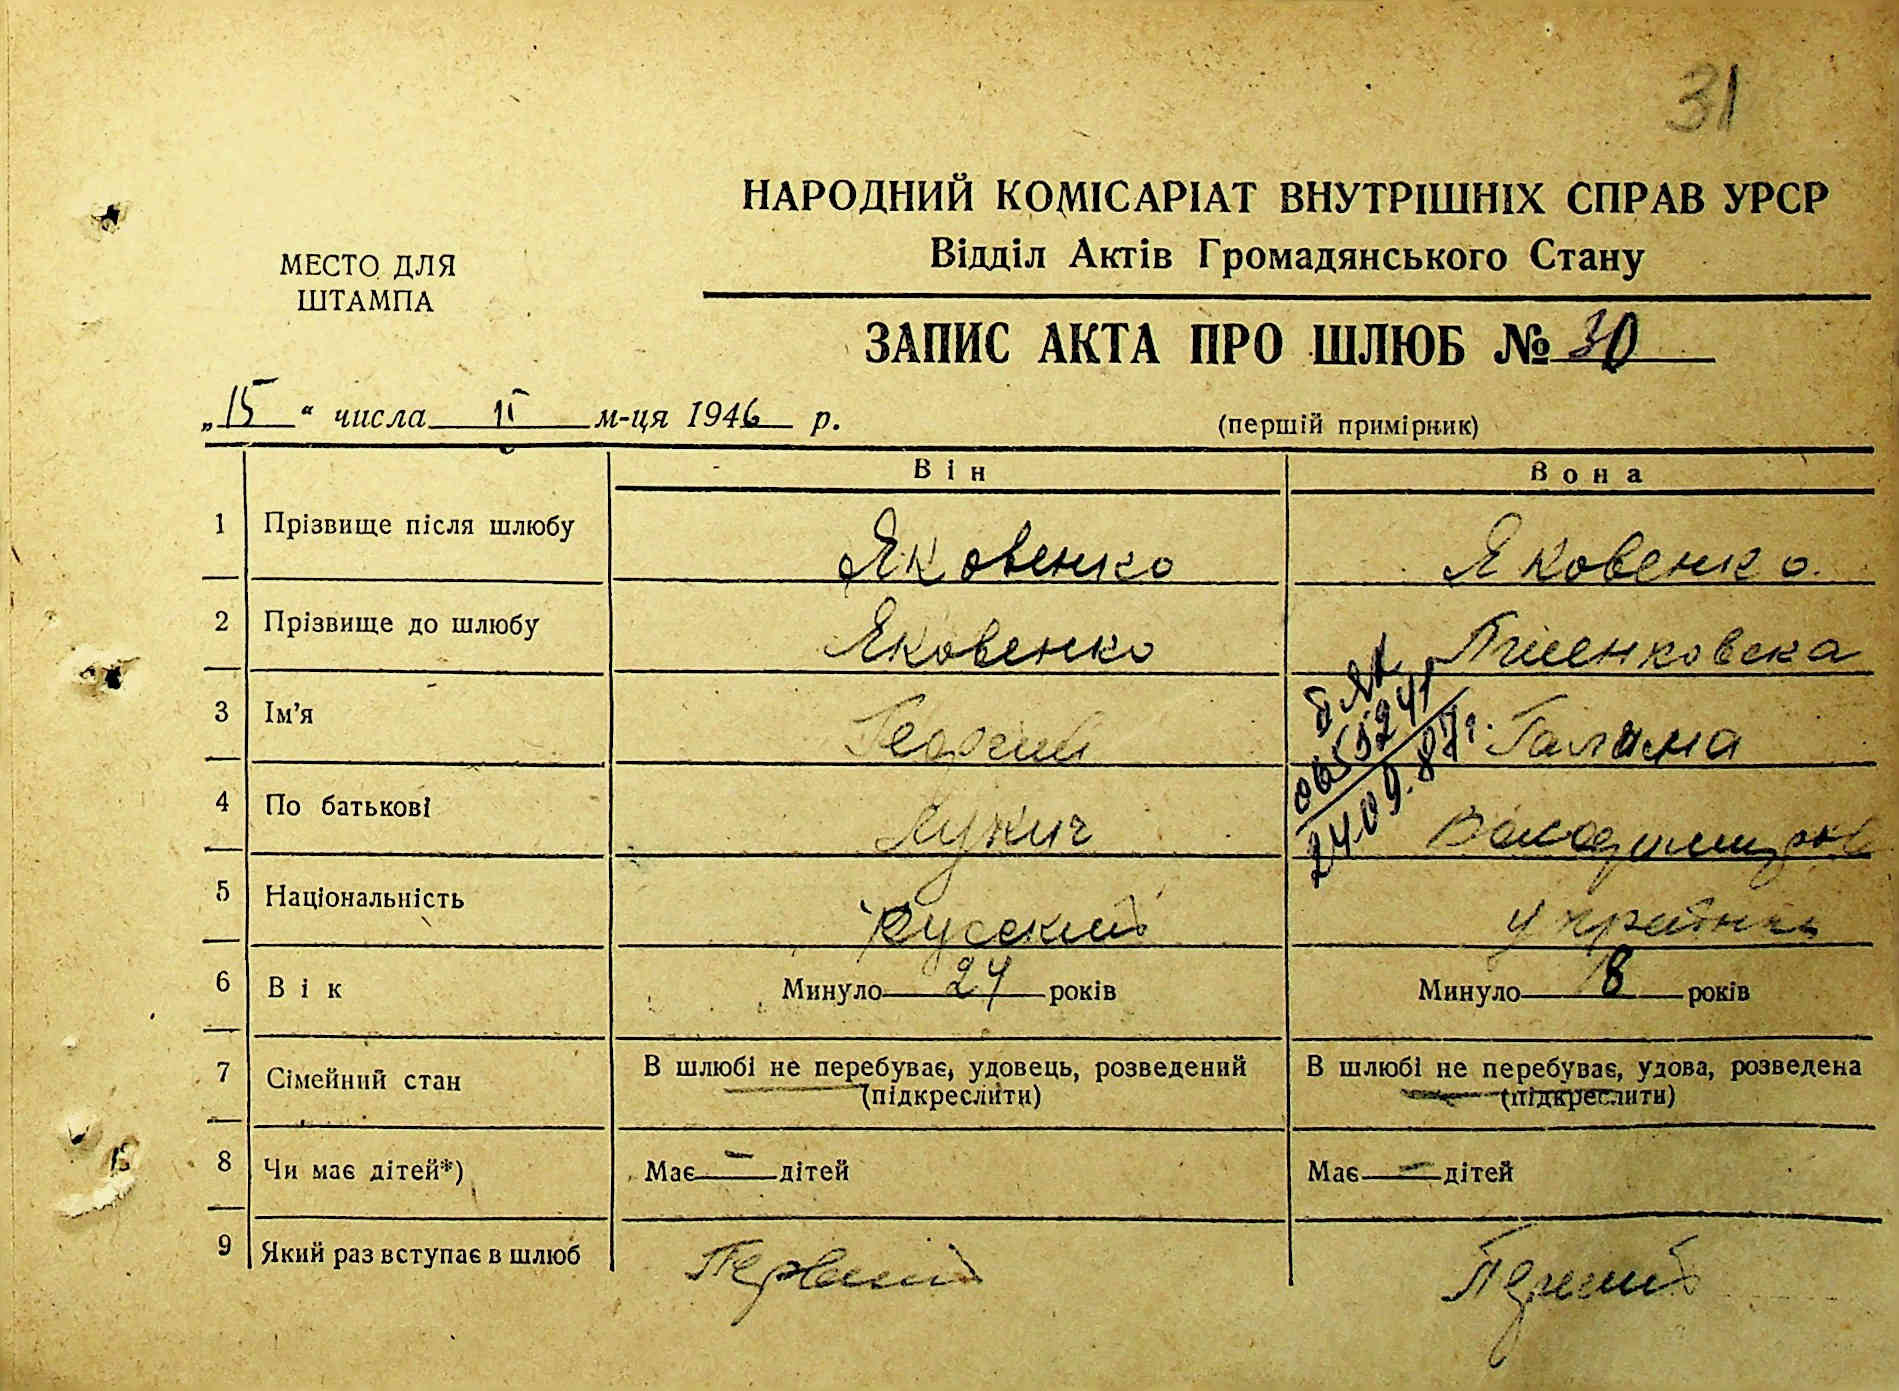 31
НАРОДНИЙ КОМІСАРІАТ ВНУТРІШНІХ СПРАВ УРСР
Відділ Актів Громадянського Стану
МЕСТО ДЛЯ
ШТАМПА
ЗАПИС АКТА ПРО ШЛЮБ № 30
„15“ числа II м-ця 1946 р.
(першій примірник)
Він Вона
1 Прізвище після шлюбу Яковенко Яковенко.
2 Прізвище до шлюбу Яковенко
3 Ім'я Георгий Галина
4 По батькові Лукич
24.09.87г.
5 Національність Русский
6 Вік Минуло 24 років Минуло 18 років
7 Сімейний стан В шлюбі не перебуває, удовець, розведений В шлюбі не перебуває, удова, розведена
(підкреслити) (підкреслити)
8 Чи має дітей*) Має — дітей Має — дітей
9 Який раз вступає в шлюб Первый Перший